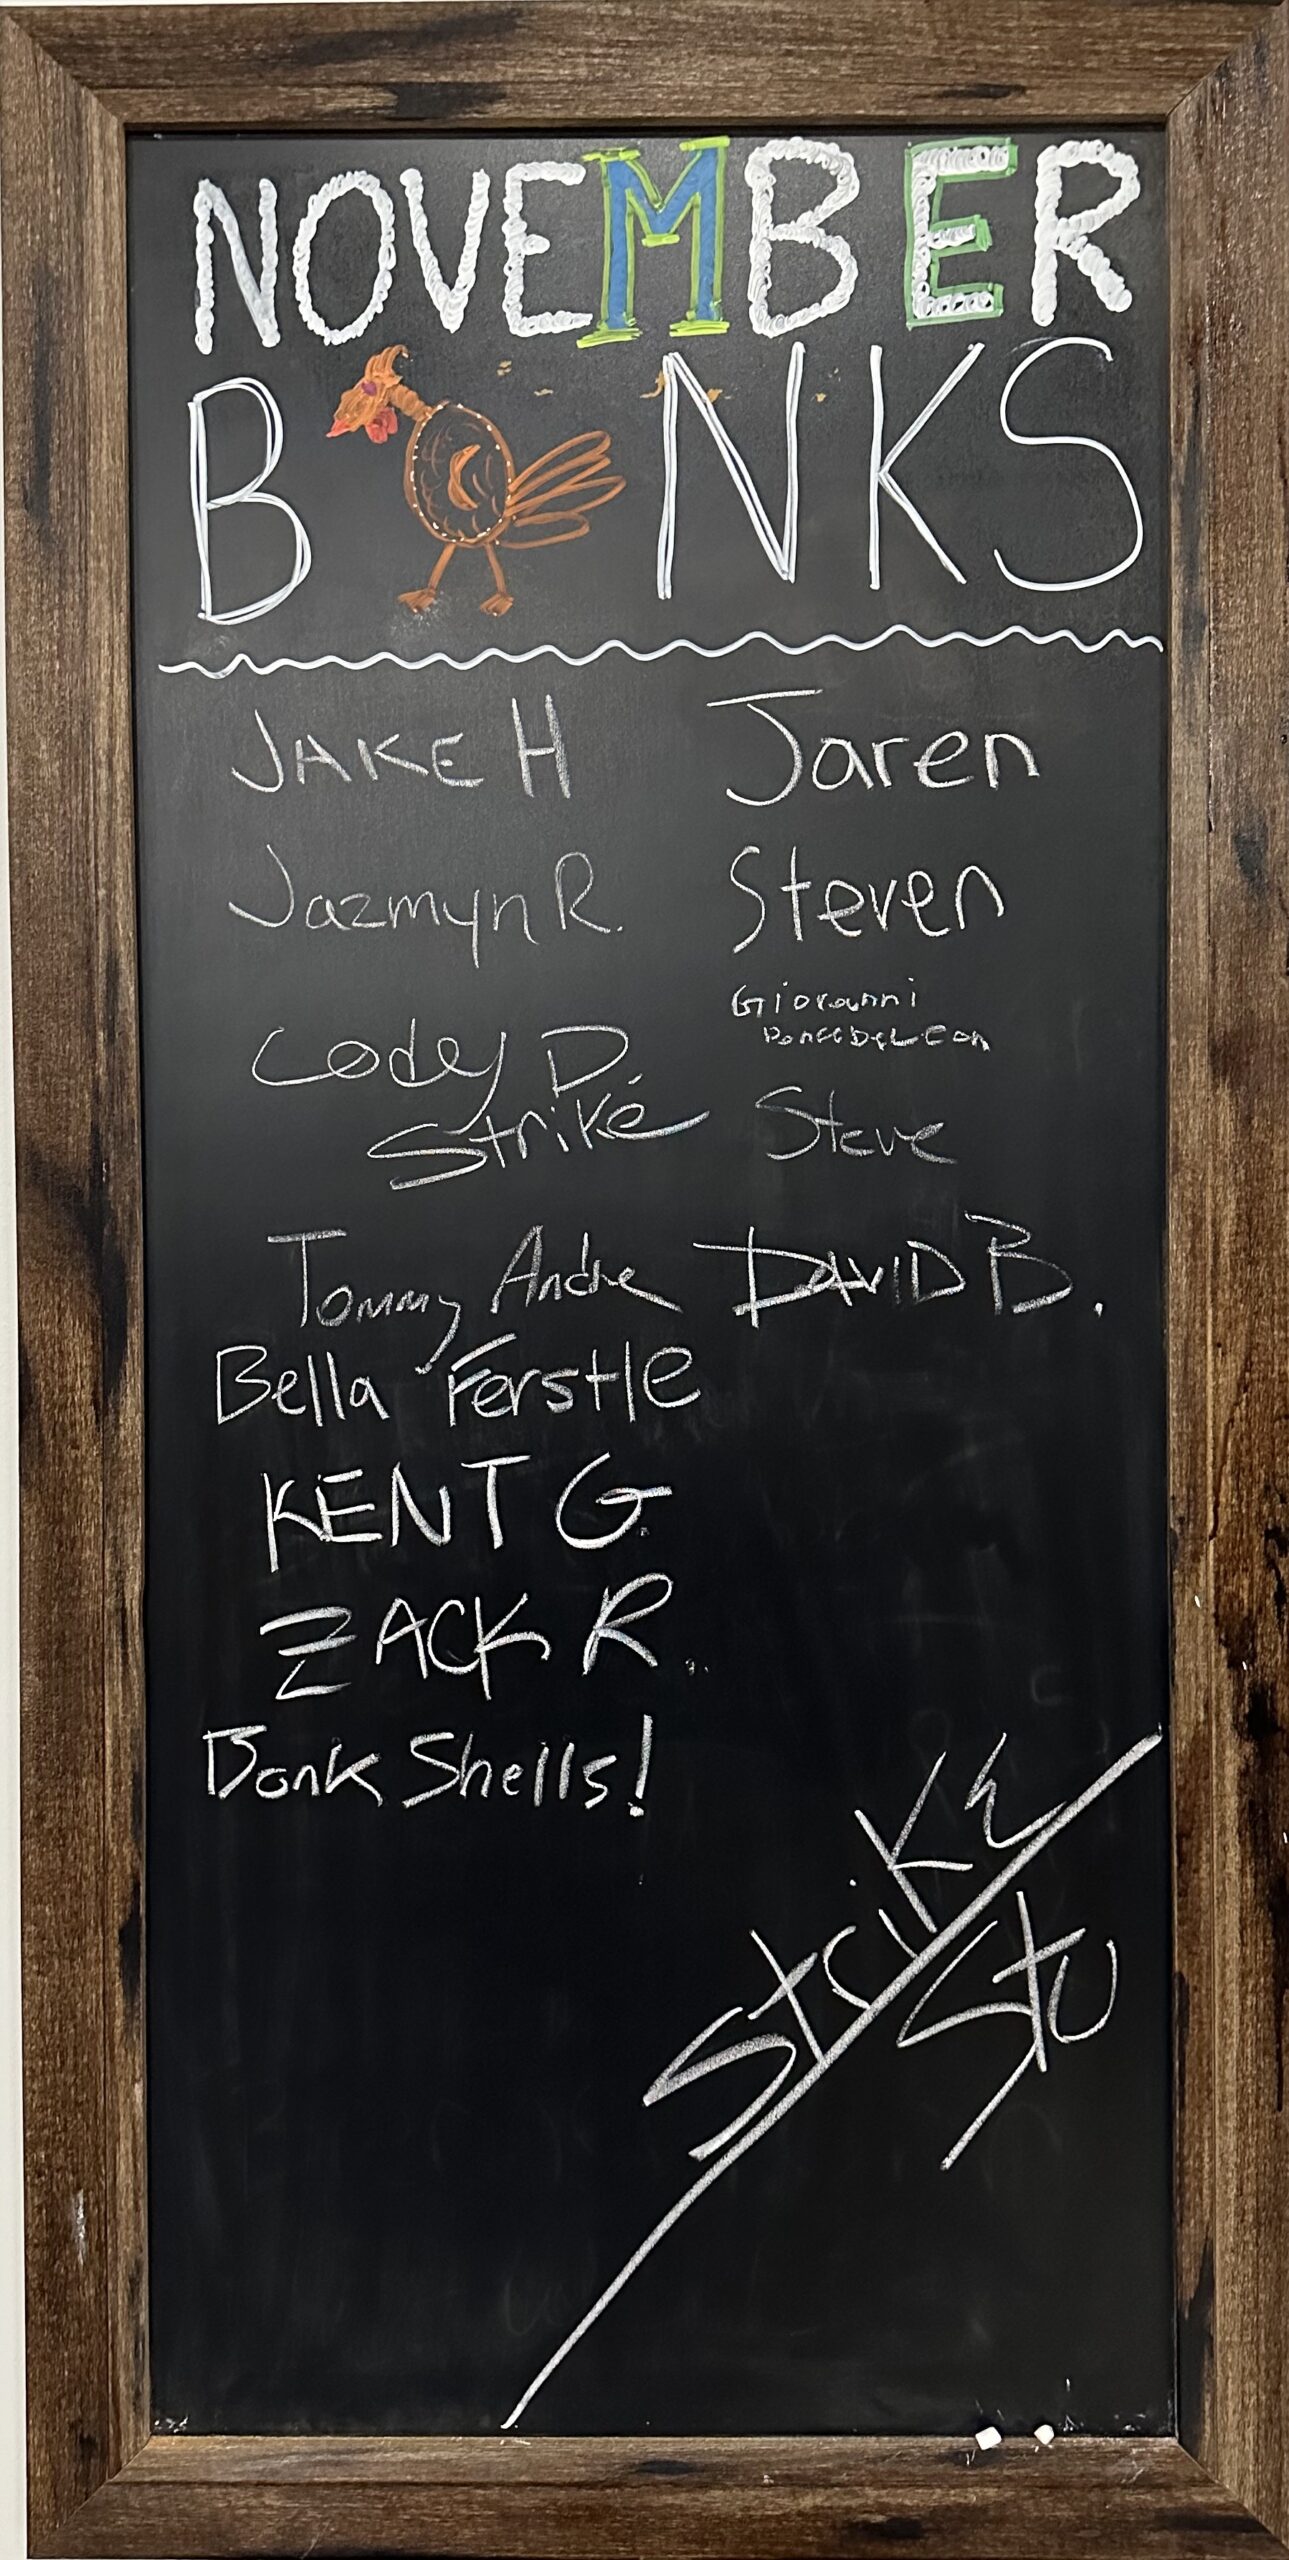 NOVEMBER
BNKS
JAKE H
Jazmyn R.
Cody D.
Strike
Tommy Andre
Bella Ferstle
KENT G.
ZACK R.
Bonk Shells!
Jaren
Steven
Giovanni
PonceDeLeon
Steve
DAVID B.
Strike
Stu